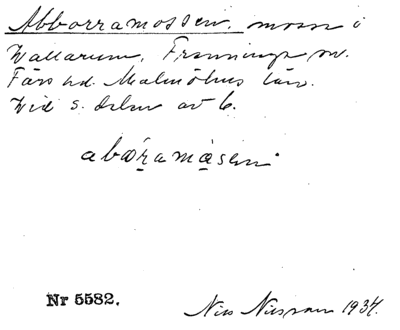 Abborramossen, mosse i
Vallarum, Frenninge sn.
Färs hd. Malmöhus län.
Vid s. delen av 6.
abåramåsen
Nr 5582.
Nils Nilsson 1934.